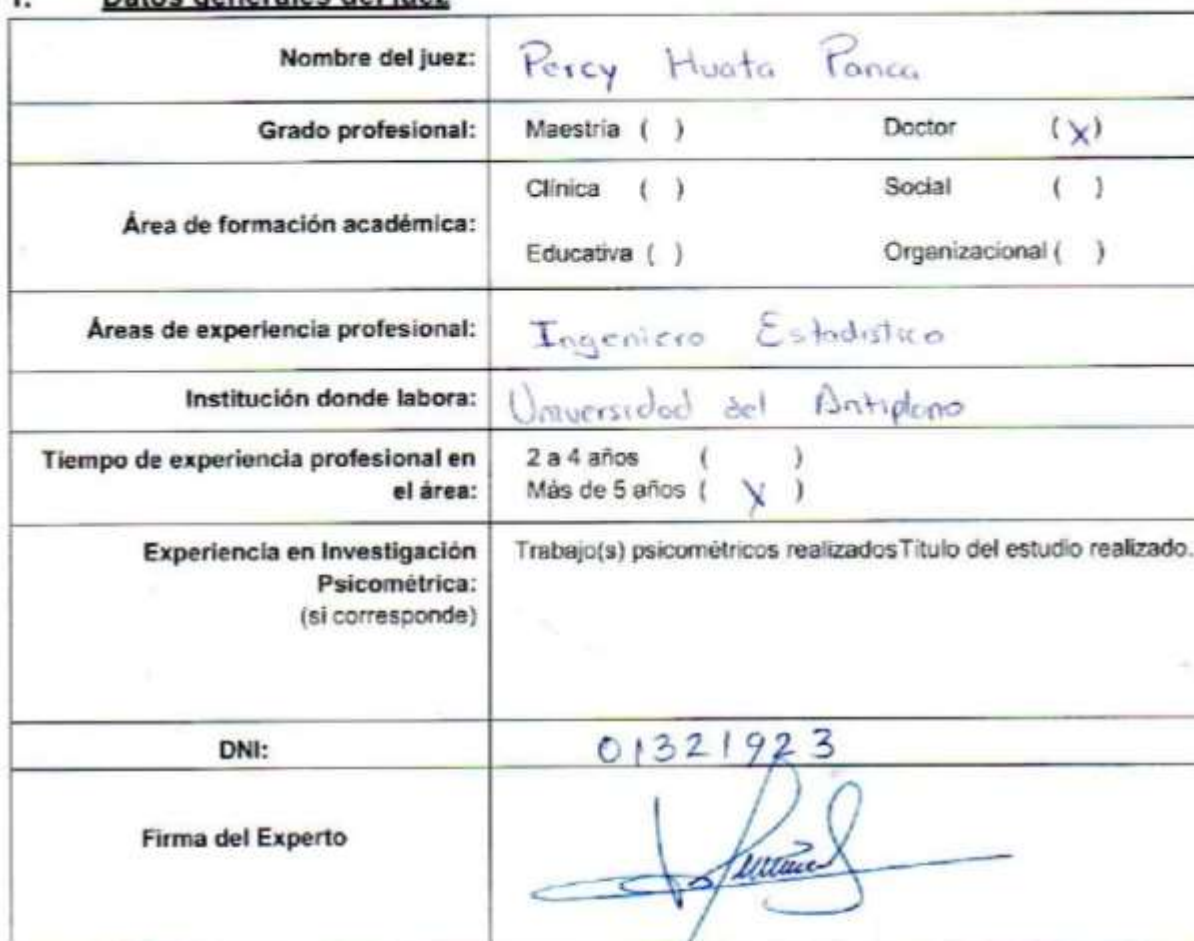 1. Datos generales del juez
Nombre del juez: Percy Huata Panca
Grado profesional: Maestría ( ) Doctor (X)
Área de formación académica:
Clínica ( ) Social ( )
Educativa ( ) Organizacional ( )
Áreas de experiencia profesional: Ingeniero Estadistico
Institución donde labora: Universidad del Antiplano
Tiempo de experiencia profesional en
el área:
2 a 4 años ( )
Más de 5 años ( X )
Experiencia en Investigación
Psicométrica:
(si corresponde)
Trabajo(s) psicométricos realizadosTítulo del estudio realizado.
DNI: 01321923
Firma del Experto